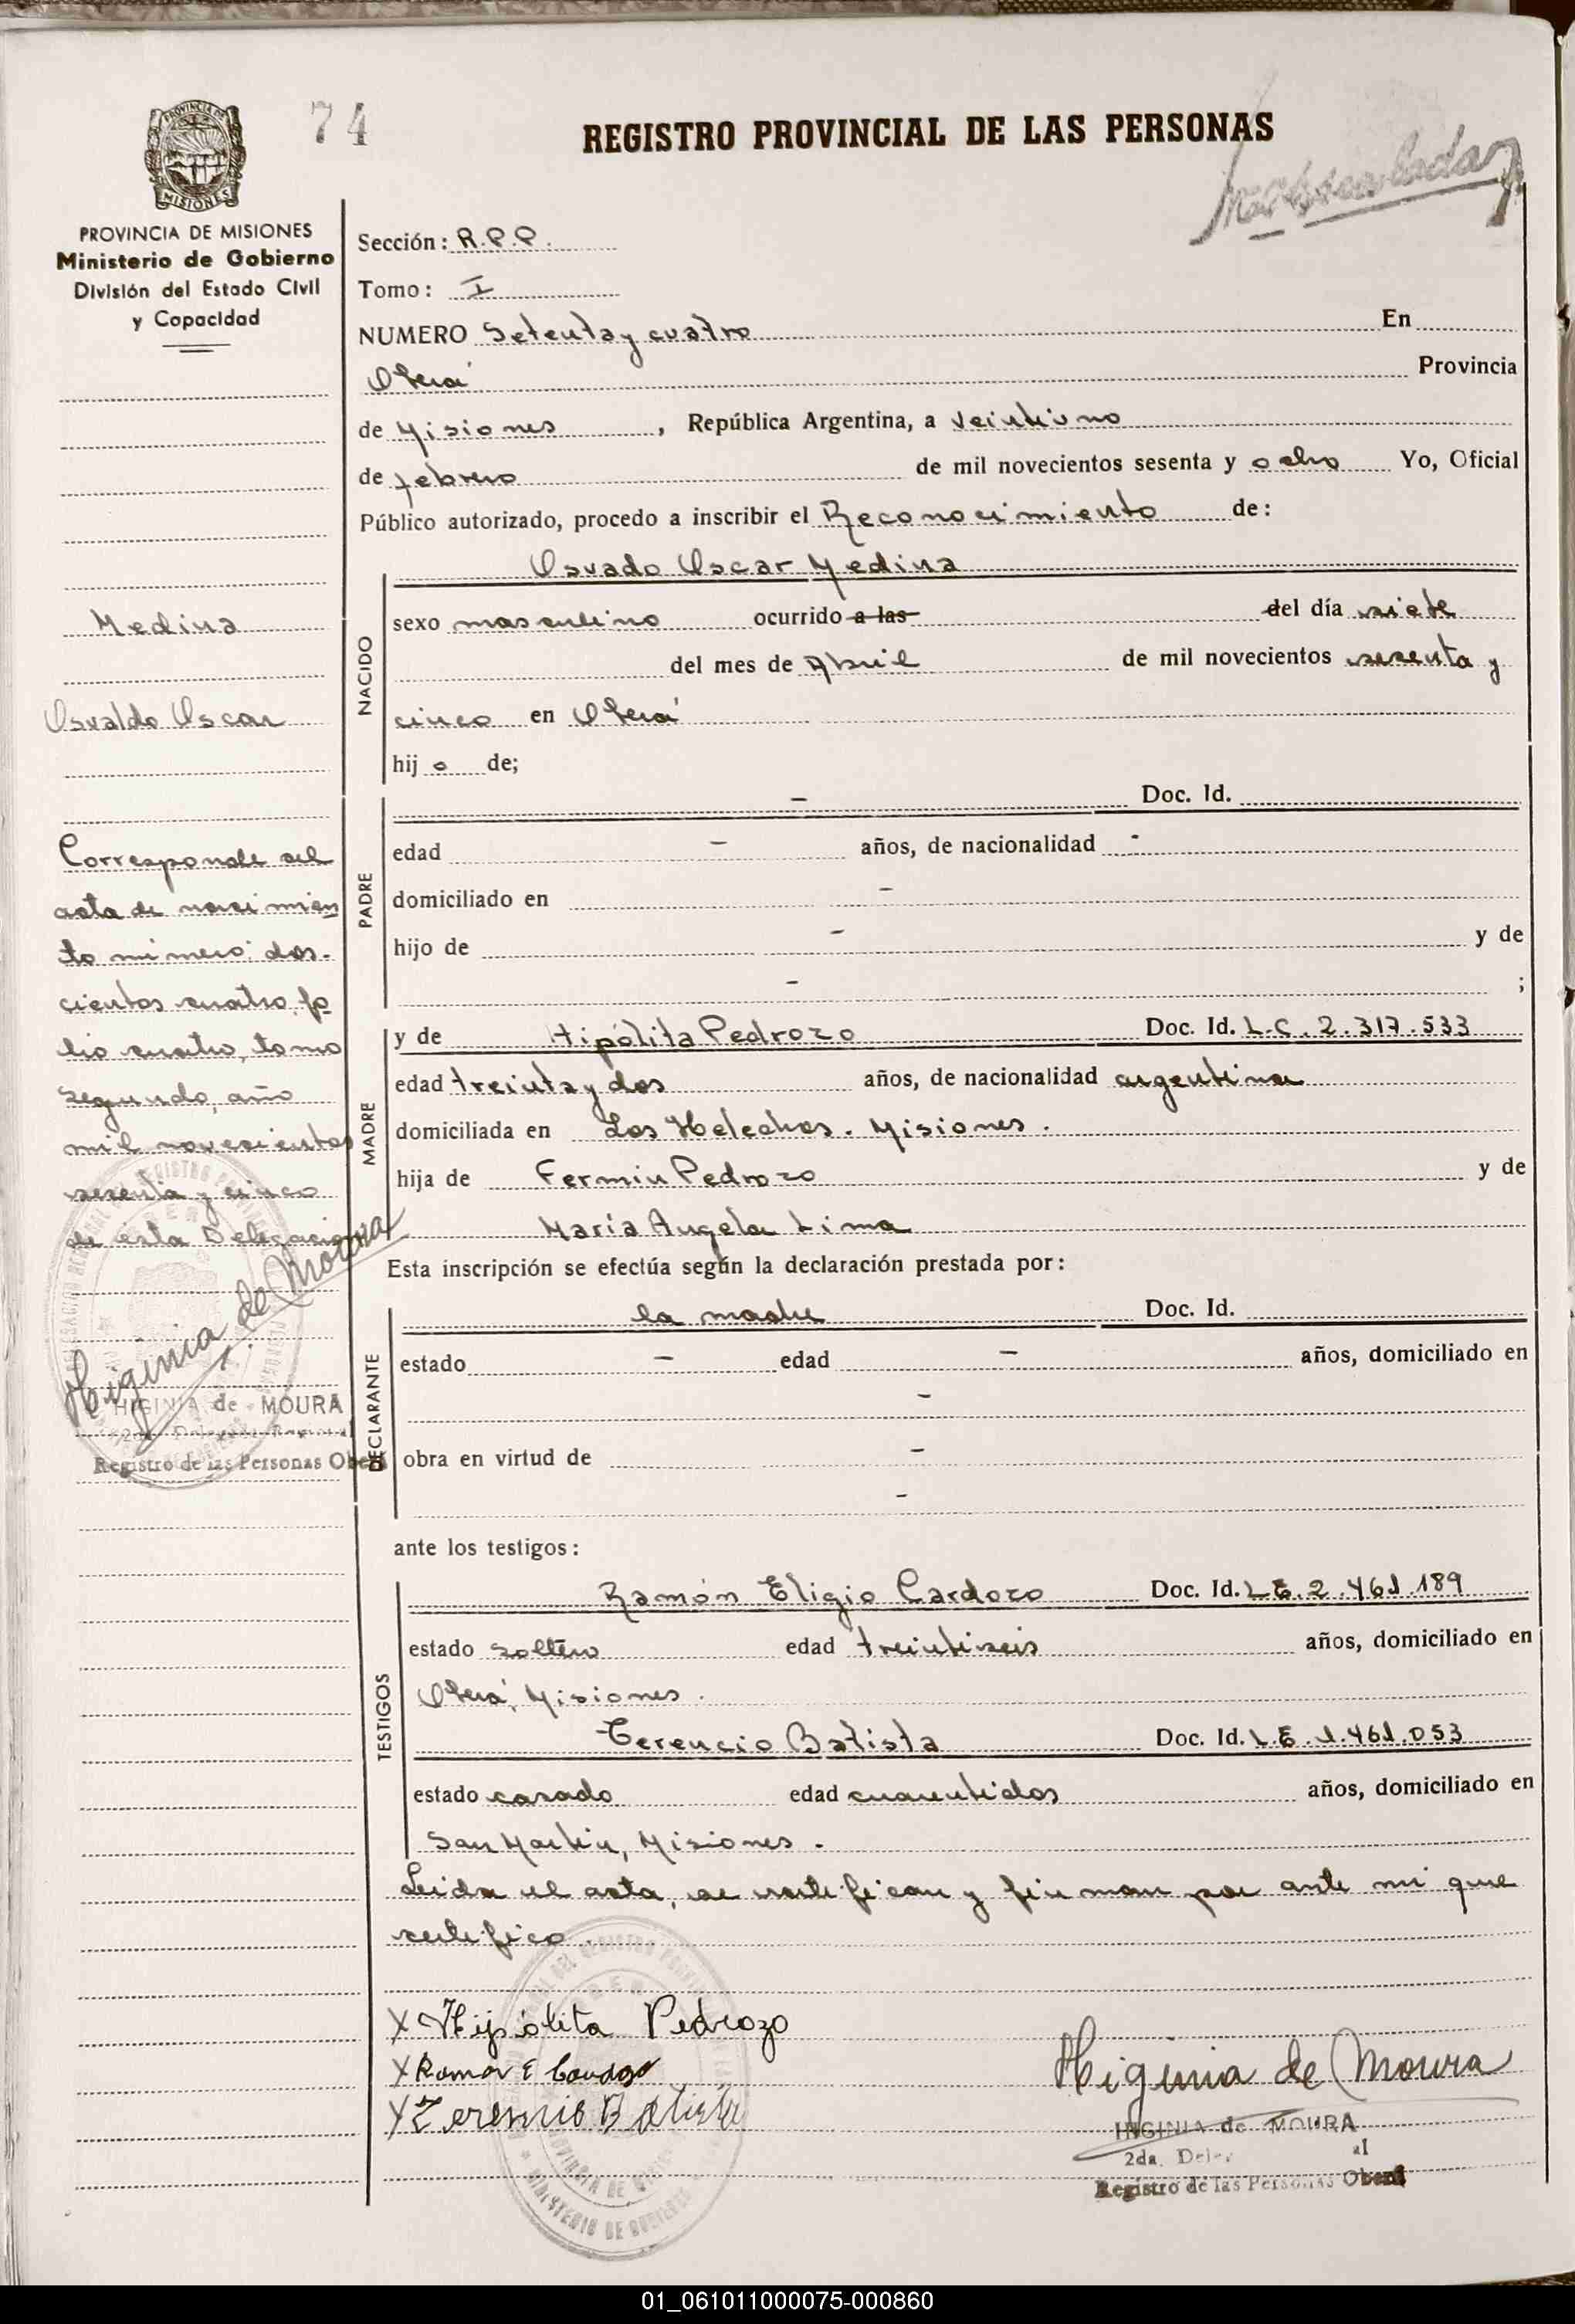 74
REGISTRO PROVINCIAL DE LAS PERSONAS
PROVINCIA DE
MISIONES
PROVINCIA DE MISIONES
Ministerio de Gobierno
División del Estado Civil
y Capacidad
Sección: R.P.P.
Tomo: I
NUMERO Setenta y cuatro En
Oberá Provincia
de Misiones, República Argentina, a veintiuno
de febrero de mil novecientos sesenta y ocho Yo, Oficial
Público autorizado, procedo a inscribir el Reconocimiento de:
Osvado Oscar Medina
NACIDO
sexo masculino ocurrido a las del día siete
del mes de Abril de mil novecientos sesenta y
cinco en Oberá
hij o de;
Medina
Osvaldo Oscar
PADRE
- Doc. Id.
edad - años, de nacionalidad -
domiciliado en -
hijo de - y de
- ;
Corresponde al
acta de nacimien
to número: dos-
cientos cuatro, fo
lio cuatro, tomo
segundo, año
mil novecientos
sesenta y cinco
de esta Delegación
Higinia de Moura
HIGINIA de MOURA
2da. Delegada Regional
Registro de las Personas Oberá
MADRE
y de Hipólita Pedrozo Doc. Id. L.C. 2.317.533
edad treinta y dos años, de nacionalidad argentina
domiciliada en Los Helechos. Misiones.
hija de Fermin Pedrozo y de
María Angela Lima
Esta inscripción se efectúa según la declaración prestada por:
DECLARANTE
la madre Doc. Id.
estado - edad - años, domiciliado en
-
obra en virtud de -
-
ante los testigos:
TESTIGOS
Ramón Eligio Cardozo Doc. Id. L.E. 2.461.189
estado soltero edad treintiseis años, domiciliado en
Oberá, Misiones.
Terencio Batista Doc. Id. L.E. 1.461.053
estado casado edad cuarentidos años, domiciliado en
San Martin, Misiones.
Leida el acta, se ratifican y firman por ante mi que
certifico.
X Hipólita Pedrozo
X Ramon E Cardozo
X Terencio Batista
Higinia de Moura
HIGINIA de MOURA
2da. Dele al
Registro de las Personas Oberá
MINISTERIO DE GOBIERNO
01_061011000075-000860